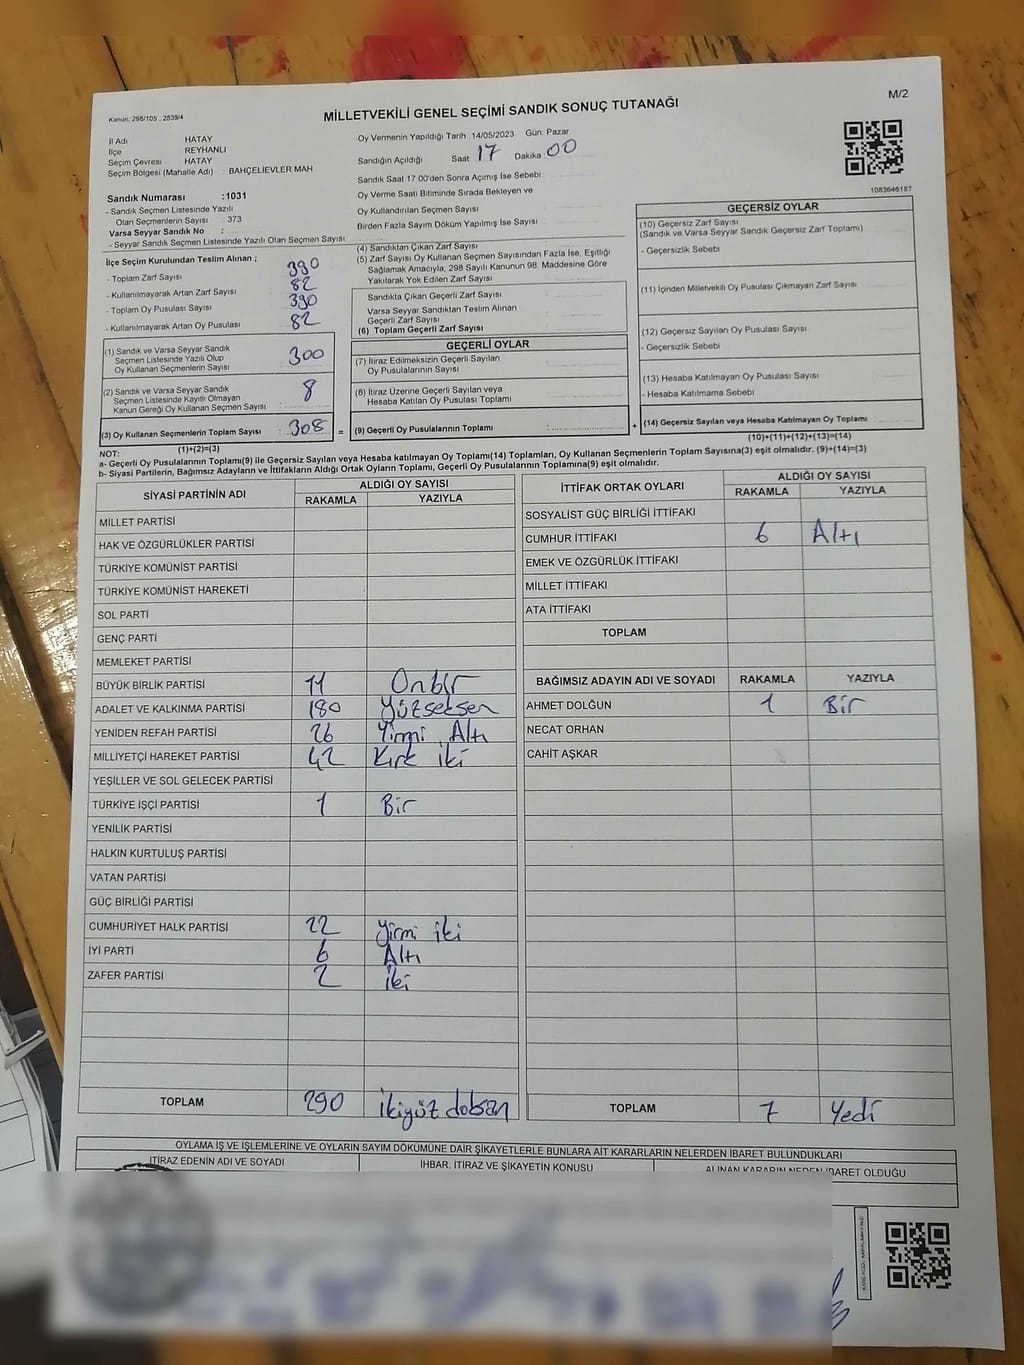 M/2
Kanun: 298/105 , 2839/4
MİLLETVEKİLİ GENEL SEÇİMİ SANDIK SONUÇ TUTANAĞI
İl Adı HATAY
İlçe REYHANLI
Seçim Çevresi HATAY
Seçim Bölgesi (Mahalle Adı) : BAHÇELİEVLER MAH
Sandık Numarası :1031
- Sandık Seçmen Listesinde Yazılı
Olan Seçmenlerin Sayısı : 373
Varsa Seyyar Sandık No :
- Seyyar Sandık Seçmen Listesinde Yazılı Olan Seçmen Sayısı
İlçe Seçim Kurulundan Teslim Alınan ;
- Toplam Zarf Sayısı 390
- Kullanılmayarak Artan Zarf Sayısı 82
- Toplam Oy Pusulası Sayısı 390
- Kullanılmayarak Artan Oy Pusulası 82
(1) Sandık ve Varsa Seyyar Sandık
Seçmen Listesinde Yazılı Olup
Oy Kullanan Seçmenlerin Sayısı : 300
(2) Sandık ve Varsa Seyyar Sandık
Seçmen Listesinde Kayıtlı Olmayan
Kanun Gereği Oy Kullanan Seçmen Sayısı : 8
(3) Oy Kullanan Seçmenlerin Toplam Sayısı : 308 =
(1)+(2)=(3)
Oy Vermenin Yapıldığı Tarih 14/05/2023 Gün: Pazar
Sandığın Açıldığı Saat 17 Dakika 00
Sandık Saat 17.00'den Sonra Açımış İse Sebebi
Oy Verme Saati Bitiminde Sırada Bekleyen ve
Oy Kullandırılan Seçmen Sayısı
Birden Fazla Sayım Döküm Yapılmış İse Sayısı
(4) Sandıktan Çıkan Zarf Sayısı
(5) Zarf Sayısı Oy Kullanan Seçmen Sayısından Fazla İse, Eşitliği
Sağlamak Amacıyla, 298 Sayılı Kanunun 98. Maddesine Göre
Yakılarak Yok Edilen Zarf Sayısı
Sandıkta Çıkan Geçerli Zarf Sayısı
Varsa Seyyar Sandıktan Teslim Alınan
Geçerli Zarf Sayısı
(6) Toplam Geçerli Zarf Sayısı
GEÇERLİ OYLAR
(7) İtiraz Edilmeksizin Geçerli Sayılan
Oy Pusulalarının Sayısı
(8) İtiraz Üzerine Geçerli Sayılan veya
Hesaba Katılan Oy Pusulası Toplamı
(9) Geçerli Oy Pusulalarının Toplamı +
1083646187
GEÇERSİZ OYLAR
(10) Geçersiz Zarf Sayısı
(Sandık ve Varsa Seyyar Sandık Geçersiz Zarf Toplamı)
- Geçersizlik Sebebi
(11) İçinden Milletvekili Oy Pusulası Çıkmayan Zarf Sayısı
(12) Geçersiz Sayılan Oy Pusulası Sayısı
- Geçersizlik Sebebi
(13) Hesaba Katılmayan Oy Pusulası Sayısı
- Hesaba Katılmama Sebebi
(14) Geçersiz Sayılan veya Hesaba Katılmayan Oy Toplamı
(10)+(11)+(12)+(13)=(14)
NOT:
a- Geçerli Oy Pusulalarının Toplamı(9) ile Geçersiz Sayılan veya Hesaba katılmayan Oy Toplamı(14) Toplamları, Oy Kullanan Seçmenlerin Toplam Sayısına(3) eşit olmalıdır. (9)+(14)=(3)
b- Siyasi Partilerin, Bağımsız Adayların ve İttifakların Aldığı Ortak Oyların Toplamı, Geçerli Oy Pusulalarının Toplamına(9) eşit olmalıdır.
SİYASİ PARTİNİN ADI ALDIĞI OY SAYISI
RAKAMLA YAZIYLA
MİLLET PARTİSİ
HAK VE ÖZGÜRLÜKLER PARTİSİ
TÜRKİYE KOMÜNİST PARTİSİ
TÜRKİYE KOMÜNİST HAREKETİ
SOL PARTİ
GENÇ PARTİ
MEMLEKET PARTİSİ
BÜYÜK BİRLİK PARTİSİ 11 Onbir
ADALET VE KALKINMA PARTİSİ 180 Yüzseksen
YENİDEN REFAH PARTİSİ 26 Yirmi Altı
MİLLİYETÇİ HAREKET PARTİSİ 42 Kırk iki
YEŞİLLER VE SOL GELECEK PARTİSİ
TÜRKİYE İŞÇİ PARTİSİ 1 Bir
YENİLİK PARTİSİ
HALKIN KURTULUŞ PARTİSİ
VATAN PARTİSİ
GÜÇ BİRLİĞİ PARTİSİ
CUMHURİYET HALK PARTİSİ 22 Yirmi iki
İYİ PARTİ 6 Altı
ZAFER PARTİSİ 2 iki
TOPLAM 290 ikiyüz doksan
İTTİFAK ORTAK OYLARI ALDIĞI OY SAYISI
RAKAMLA YAZIYLA
SOSYALİST GÜÇ BİRLİĞİ İTTİFAKI
CUMHUR İTTİFAKI 6 Altı
EMEK VE ÖZGÜRLÜK İTTİFAKI
MİLLET İTTİFAKI
ATA İTTİFAKI
TOPLAM
BAĞIMSIZ ADAYIN ADI VE SOYADI RAKAMLA YAZIYLA
AHMET DOLĞUN 1 Bir
NECAT ORHAN
CAHİT AŞKAR
TOPLAM 7 Yedi
OYLAMA İŞ VE İŞLEMLERİNE VE OYLARIN SAYIM DÖKÜMÜNE DAİR ŞİKAYETLERLE BUNLARA AİT KARARLARIN NELERDEN İBARET BULUNDUKLARI
İTİRAZ EDENİN ADI VE SOYADI İHBAR, İTİRAZ VE ŞİKAYETİN KONUSU ALINAN KARARIN NEDEN İBARET OLDUĞU